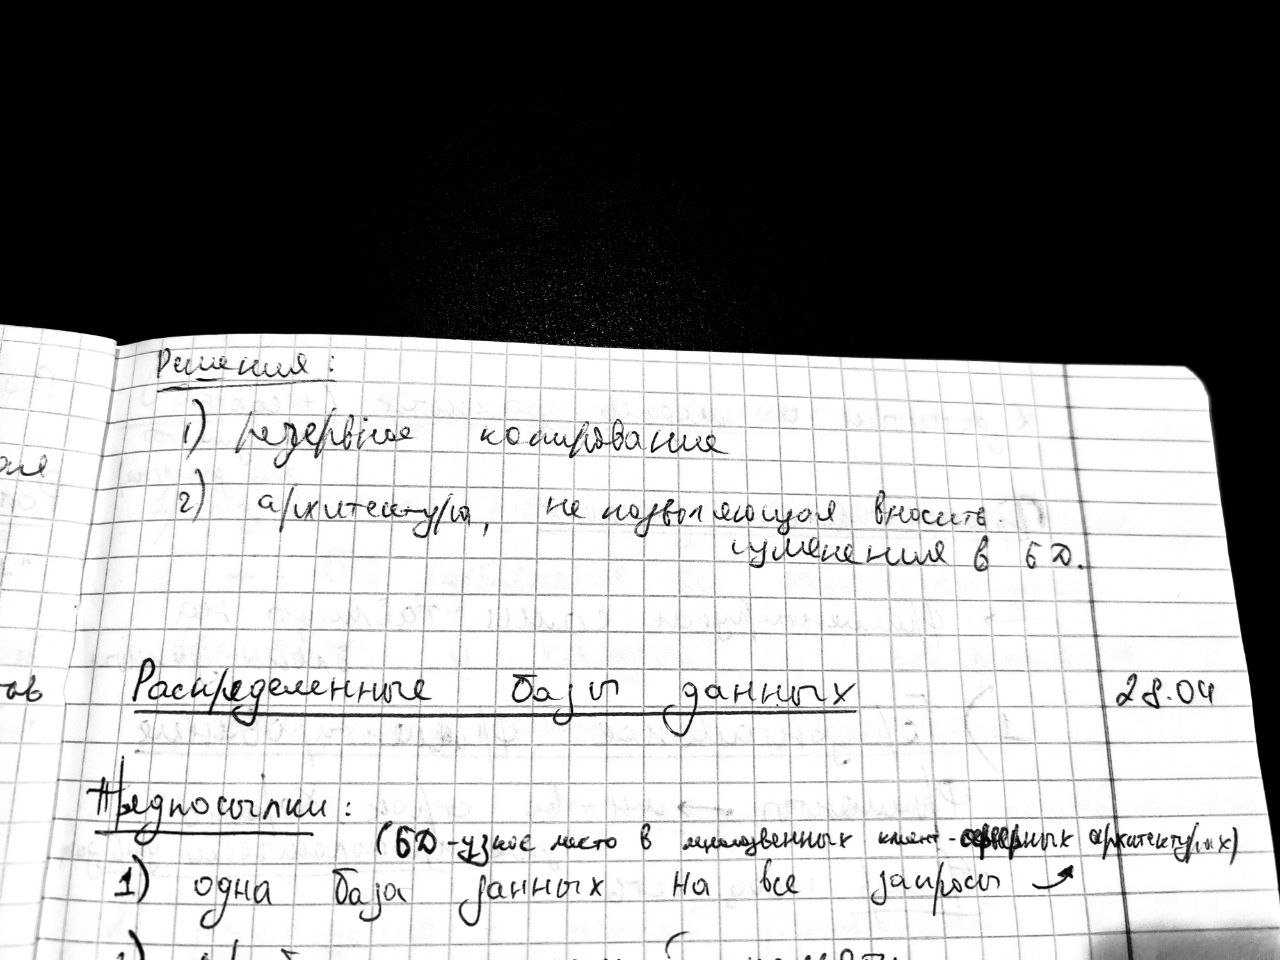 Решения:
1) резервное копирование
2) архитектура, не позволяющая вносить
изменения в БД.
Распределенные базы данных 28.04
Предпосылки:
(БД-узкое место в клиент-серверных архитектурах)
1) одна база данных на все запросы